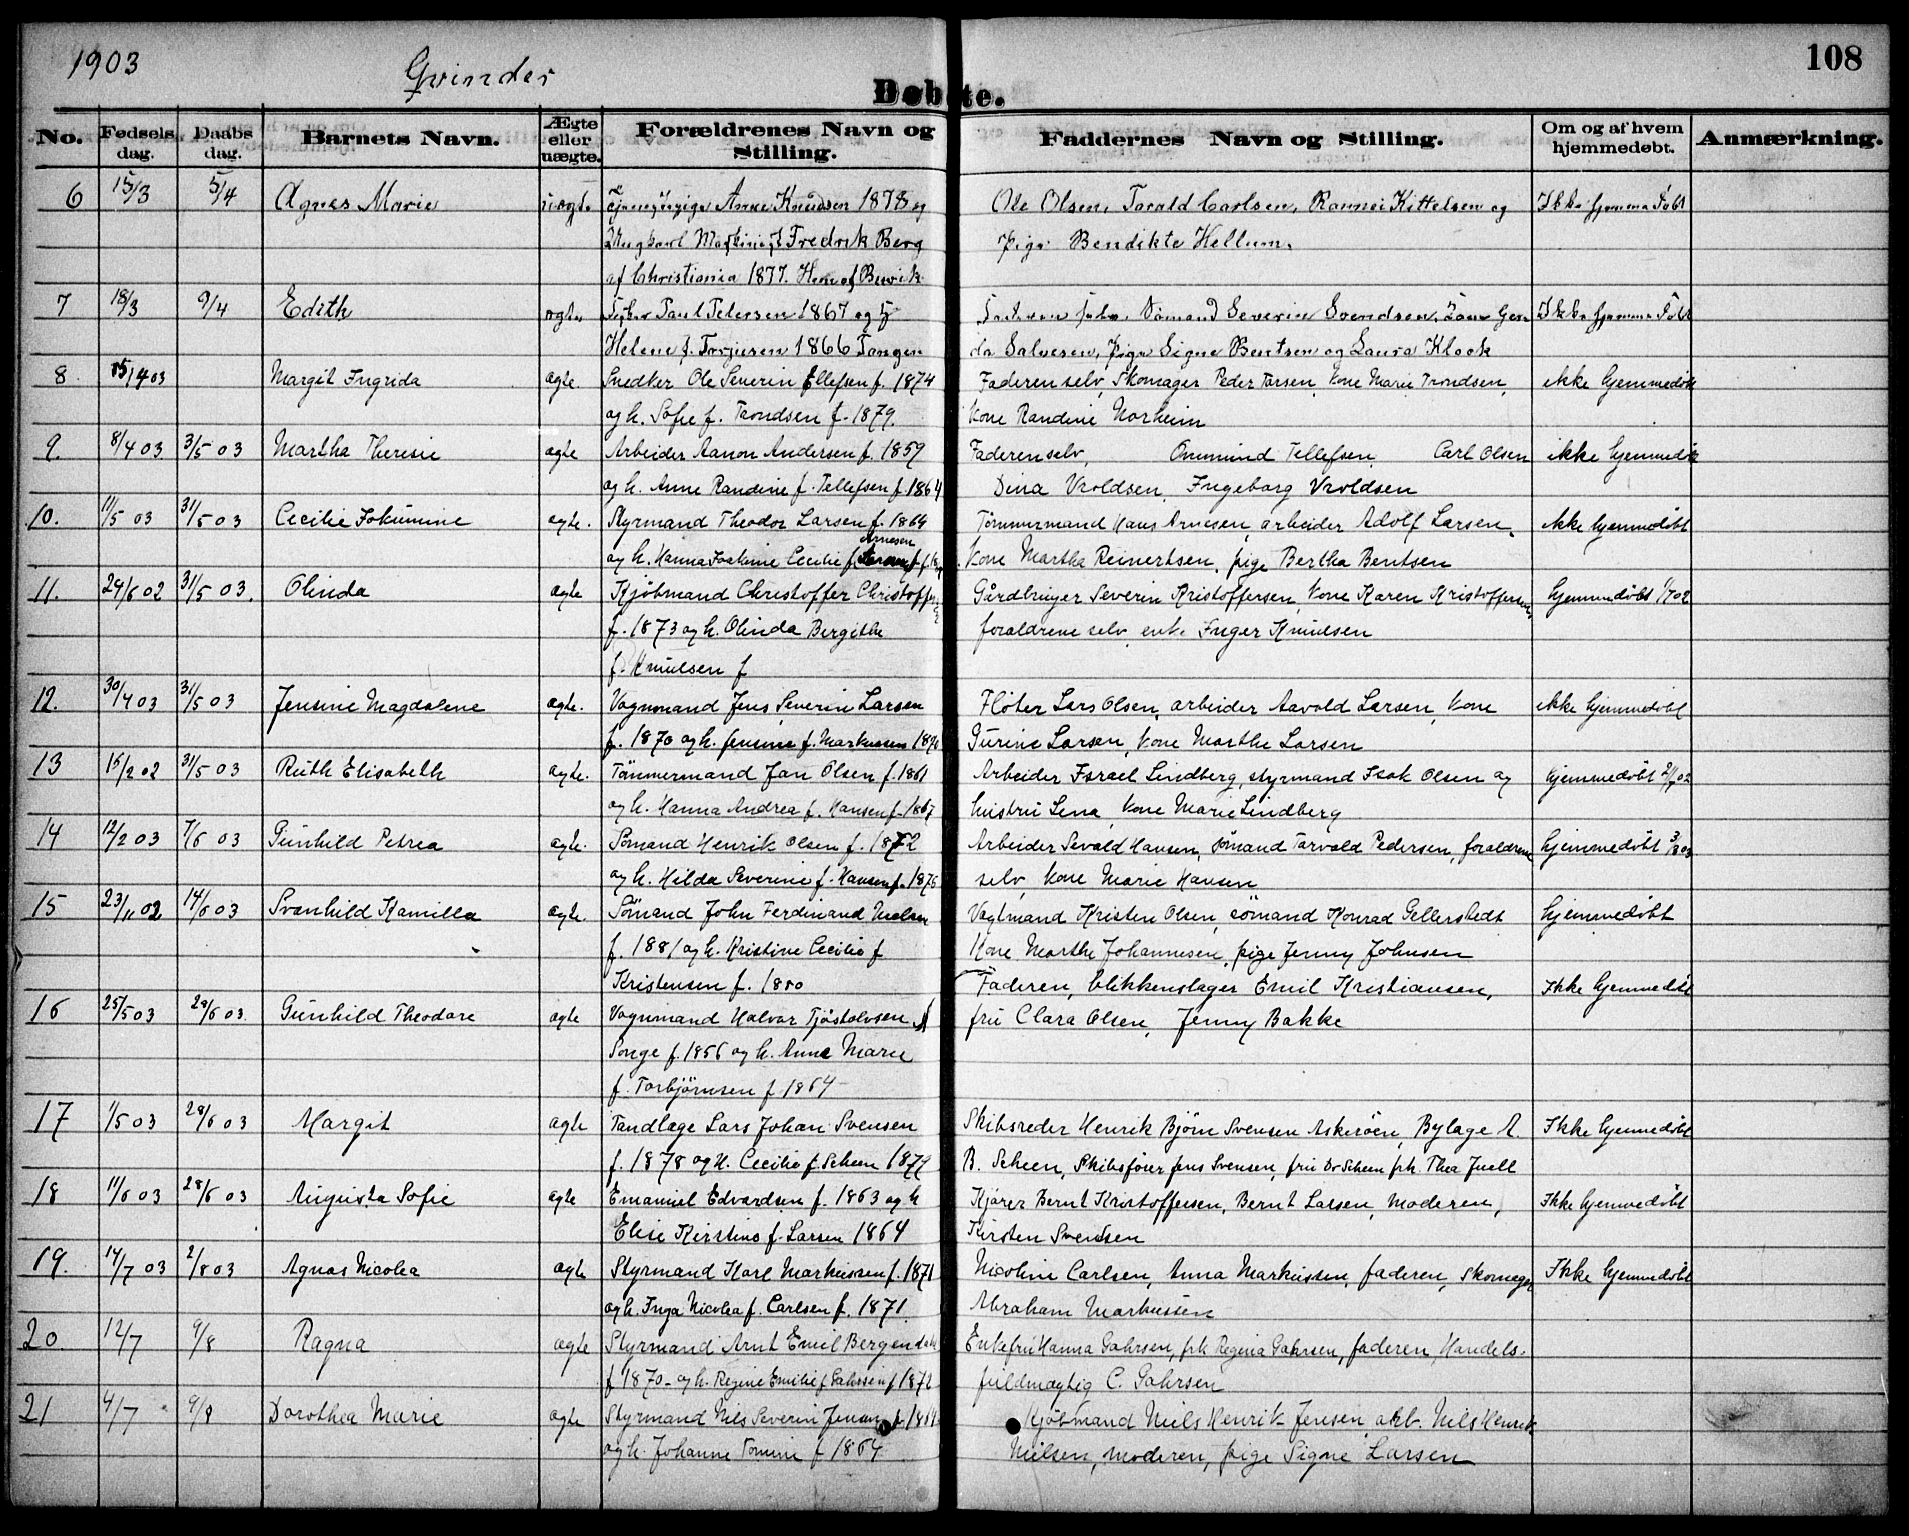 1903 Qvinder 108
Døbte.
No. Fødsels dag. Daabs dag. Barnets Navn. Ægte eller uægte. Forældrenes Navn og Stilling. Faddernes Navn og Stilling. Om og af hvem hjemmedøbt. Anmærkning.
6 15/3 5/4 Agnes Marie uægte Tjenestepige Anne Knudsen 1878 og Ole Olsen, Tarald Carlsen, Rannei Kittelsen og Ikke hjemmedøbt
Ungkarl Maskinist Fredrik Berg pige Bendikte Hellum.
af Christiania 1877. Hun af Buvik
7 18/3 9/4 Edith ægte Paul Petersen 1867 og h Faderen selv, Sømand Severin Svendsen, Kone Ger- Ikke hjemmedøbt
Helene f. Torjusen 1866 Tangen da Salvesen, pige Signe Bentsen og Laura Klook
8 15/4 03 Margit Ingrida ægte. Snedker Ole Severin Ellefsen f. 1874 Faderen selv, Skomager Peder Tarsen, kone Marie Trondsen, ikke hjemmedøbt
og h. Sofie f. Trondsen f. 1879. kone Randine Norheim
9. 8/4 03 3/5 03 Martha Theresie ægte Arbeider Aanon Andersen f. 1859 Faderen selv, Onnmund Tellefsen, Carl Olsen ikke hjemmedøbt
og h. Anne Randine f. Tellefsen f. 1864 Dina Vroldsen, Ingeborg Vroldsen
10. 11/5 03 31/5 03 Cecilie Jokumine ægte. Styrmand Theodor Larsen f. 1869 Tømmermand Hans Arnesen, arbeider Adolf Larsen, ikke hjemmedøbt
Arnesen
og h. Hanna Joakime Cecilie f. Larsen f. Kone Martha Reinertsen, pige Bertha Bentsen
11. 24/6 02 31/5 03. Olinda ægte Kjøbmand Christoffer Christoffersen Gårdbruger Severin Kristoffersen, kone Karen Kristoffersen, hjemmedøbt 1/7 02
f. 1873 og h. Olinda Bergithe forældrene selv, enke Inger Knudsen
f. Knudsen f
12. 30/4 03 31/5 03 Jensine Magdalene ægte. Vognmand Jens Severin Larsen Fløter Lars Olsen, arbeider Aavold Larsen, kone ikke hjemmedøbt
f. 1870 og h. Jensine f. Markussen 1870 Gurine Larsen, kone Marthe Larsen
13 15/2 02 31/5 03 Ruth Elisabeth ægte. Tømmermand Jan Olsen f. 1861 Arbeider Israel Lindberg, styrmand Isak Olsen og hjemmedøbt
og h. Hanna Andrea f. Hansen f. 1867 hustru Lena, kone Marie Lindberg
14 12/2 03 7/6 03 Gunhild Petrea ægte. Sømand Henrik Olsen f. 1872 Arbeider Sevald Hansen, sømand Torvald Pedersen, forældrene hjemmedøbt 3/3 03
og h. Hilda Severine f. Hansen f. 1876 selv, kone Marie Hansen
15 23/11 02 14/6 03 Svanhild Kamilla ægte. Sømand John Ferdinand Nielsen Vagtmand Kristen Olsen, sømand Konrad Gellerstedt hjemmedøbt
f. 1881 og h. Kristine Cecilie f Kone Marthe Johannesen, pige Jenny Johnsen
Kristensen f. 1880 Faderen, blikkenslager Emil Kristiansen, Ikke hjemmedøbt
16 25/5 03 28/6 03. Gunhild Theodore ægte Vognmand Halvor Tjøstolvsen fru Clara Olsen, Jenny Bakke
Songe f. 1856 og h. Anne Marie
f. Torbjørnsen f 1864
17 1/5 03 28/6 03 Margit ægte Tandlæge Lars Johan Svensen Skibsreder Henrik Bjørn Svensen Askerøen, Bylæge A. Ikke hjemmedøbt
f. 1878 og h. Cecilie f. Scheen 1879 B. Scheen, Skibsfører Jens Svensen, fru Dr Scheen frk. Thea Juell
18 11/6 03 28/6 03 Augusta Sofie ægte Emanuel Edvardsen f. 1863 og h Kjører Bernt Kristoffersen, Bernt Larsen, moderen, Ikke hjemmedøbt
Elise Kirstine f. Larsen 1864 Kirsten Svendsen
19. 14/7 03 2/8 03 Agnas Nicolea ægte Styrmand Karl Markussen f. 1871 Nicoline Carlsen, Anna Markussen, faderen, skomager Ikke hjemmedøbt
og h. Inga Nicolea f. Carlsen f. 1871 Abraham Markussen
20. 12/7 9/8 Ragna ægte Styrmand Arnt Emil Bergendahl Enkefru Hanna Gahrsen, frk Regina Gahrsen, faderen, Handels-
f 1870 - og h. Regine Emilie f Gahrsen f 1872 fuldmægtig C. Gahrsen
21 4/7 9/8 Dorothea Marie ægte Styrmand Nils Severin Jensen f. 1864 Kjøbmand Niels Henrik Jensen, arb. Nils Henrik
og h. Johanne Tomine f 1864 Nielsen, moderen, pige Signe Larsen